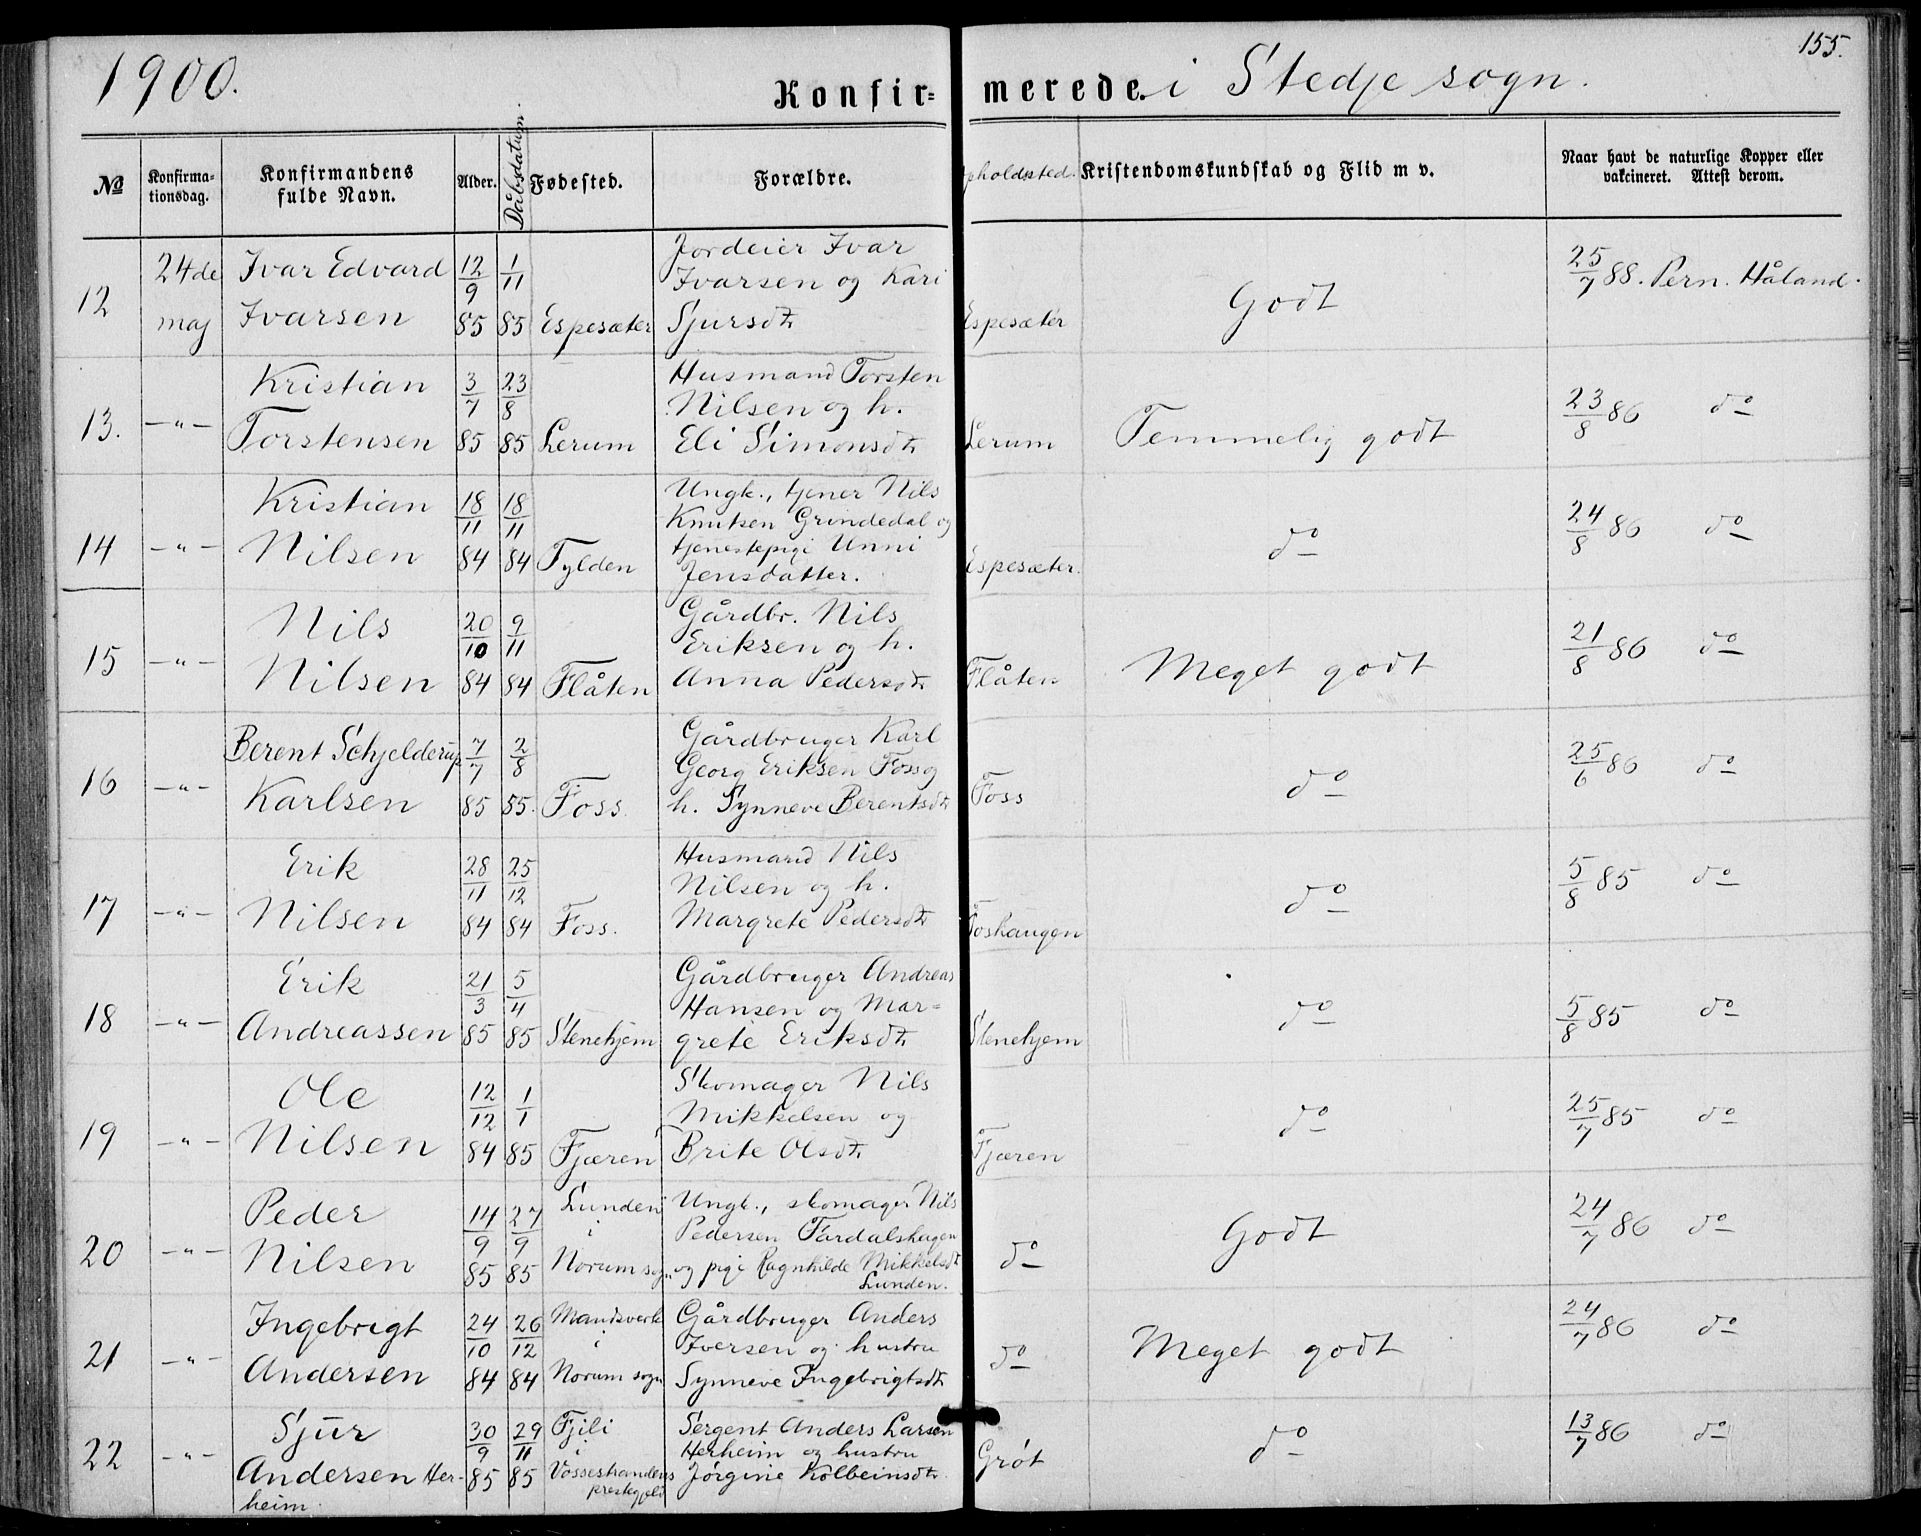 1900.
155.
Konfir= merede. i Stedje sogn.
№ Konfirma-tionsdag. Konfirmandens fulde Navn. Alder. Dåbsdatum. Fødested. Forældre. pholdsted. Kristendomskundskab og Flid m v. Naar havt de naturlige Kopper eller vakcineret. Attest derom.
24de Ivar Edvard 12/9 1/11 Jordeier Ivar
Ivarsen og Kari 25/7 88. Pern. Håland.
12 maj Ivarsen 85 85 Espesæter Sjursdtr Espesæter Godt
Kristian 3/7 23/8 Husmand Torsten
Nilsen og h. 23/8 86 do
13. -"- Torstensen 85 85 Lerum Eli Simonsdtr Lerum Temmelig godt
Kristian 18/11 18/11 Ungk., tjener Nils
Knutsen Grindedal og 24/8 86 do
14 -"- Nilsen 84 84 Tylden tjenestepige Unni Espesæter. do
Jensdatter.
Nils 20/10 9/11 Gårdbr. Nils
Eriksen og h. 21/8 86 do
15 -"- Nilsen 84 84 Flåten Anna Pedersdtr Flåten Meget godt
Berent Schjelderup 7/7 2/8 Gårdbruger Karl
Georg Eriksen Foss og 25/6 86 do
16 -"- Karlsen 85 85. Foss. h. Synneve Berentsdtr Foss do
Erik 28/11 25/12 Husmand Nils
Nilsen og h. 5/8 85 do
17 -"- Nilsen 84 84 Foss. Margrete Pedersdtr Foshaugen do
Erik 21/3 5/4 Gårdbruger Andreas
Hansen og Mar= 5/8 85 do
18 -"- Andreassen 85 85 Stenehjem grete Eriksdtr Stenehjem do
Ole 12/12 1/1 Skomager Nils
Mikkelsen og 25/7 85 do
19 -"- Nilsen 84 85 Fjæren Brite Olsdtr Fjæren do
Peder 14/9 27/9 Lunden Ungk., skomager Nils
i Pedersen Fardalshagen 24/7 86 do
20 -"- Nilsen 85 85 Norum sogn og pige Ragnhilde Mikkelsdtr do Godt
Lunden.
Ingebrigt 24/10 26/12 Mandsverk Gårdbruger Anders
i Iversen og hustru 24/7 86 do
21 -"- Andersen 84 84 Norum sogn Synneve Ingebrigtsdtr do Meget godt
Sjur 30/9 29/11 Fjili Sergent Anders Larsen
i Herheim og hustru 13/7 86 do
22 -"- Andersen Her- 85 85 Vossestrandens Jørgine Kolbeinsdtr. Grøt do
heim. prestegjeld